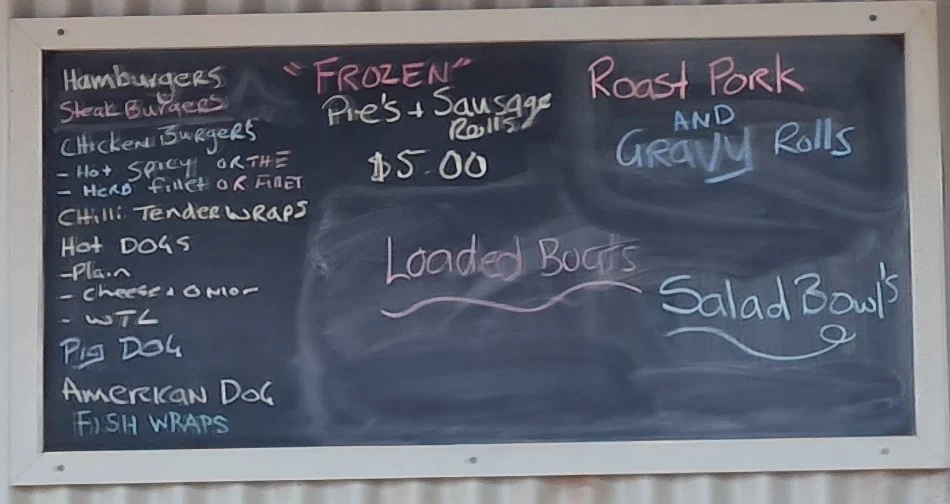 Hamburgers
Steak Burgers
Chicken Burgers
- Hot Spicy OR THE
- Herb fillet OR FILLET
Chilli Tender WRAPS
Hot DOGS
-Plain
- Cheese + Onion
- WTL
Pig DOG
American Dog
FISH WRAPS
"FROZEN"
Pie's + Sausage
Rolls
$5.00
Loaded Boats
Roast Pork
AND
GRAVY Rolls
Salad Bowl's